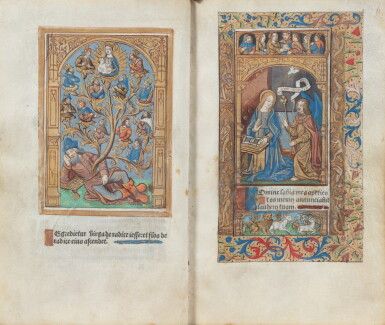 Egredietur Virga de radice iesse: et flos de
radice eius ascendet.
Domine labia mea aperies
Et os meum annunciabit
laudem tuam.